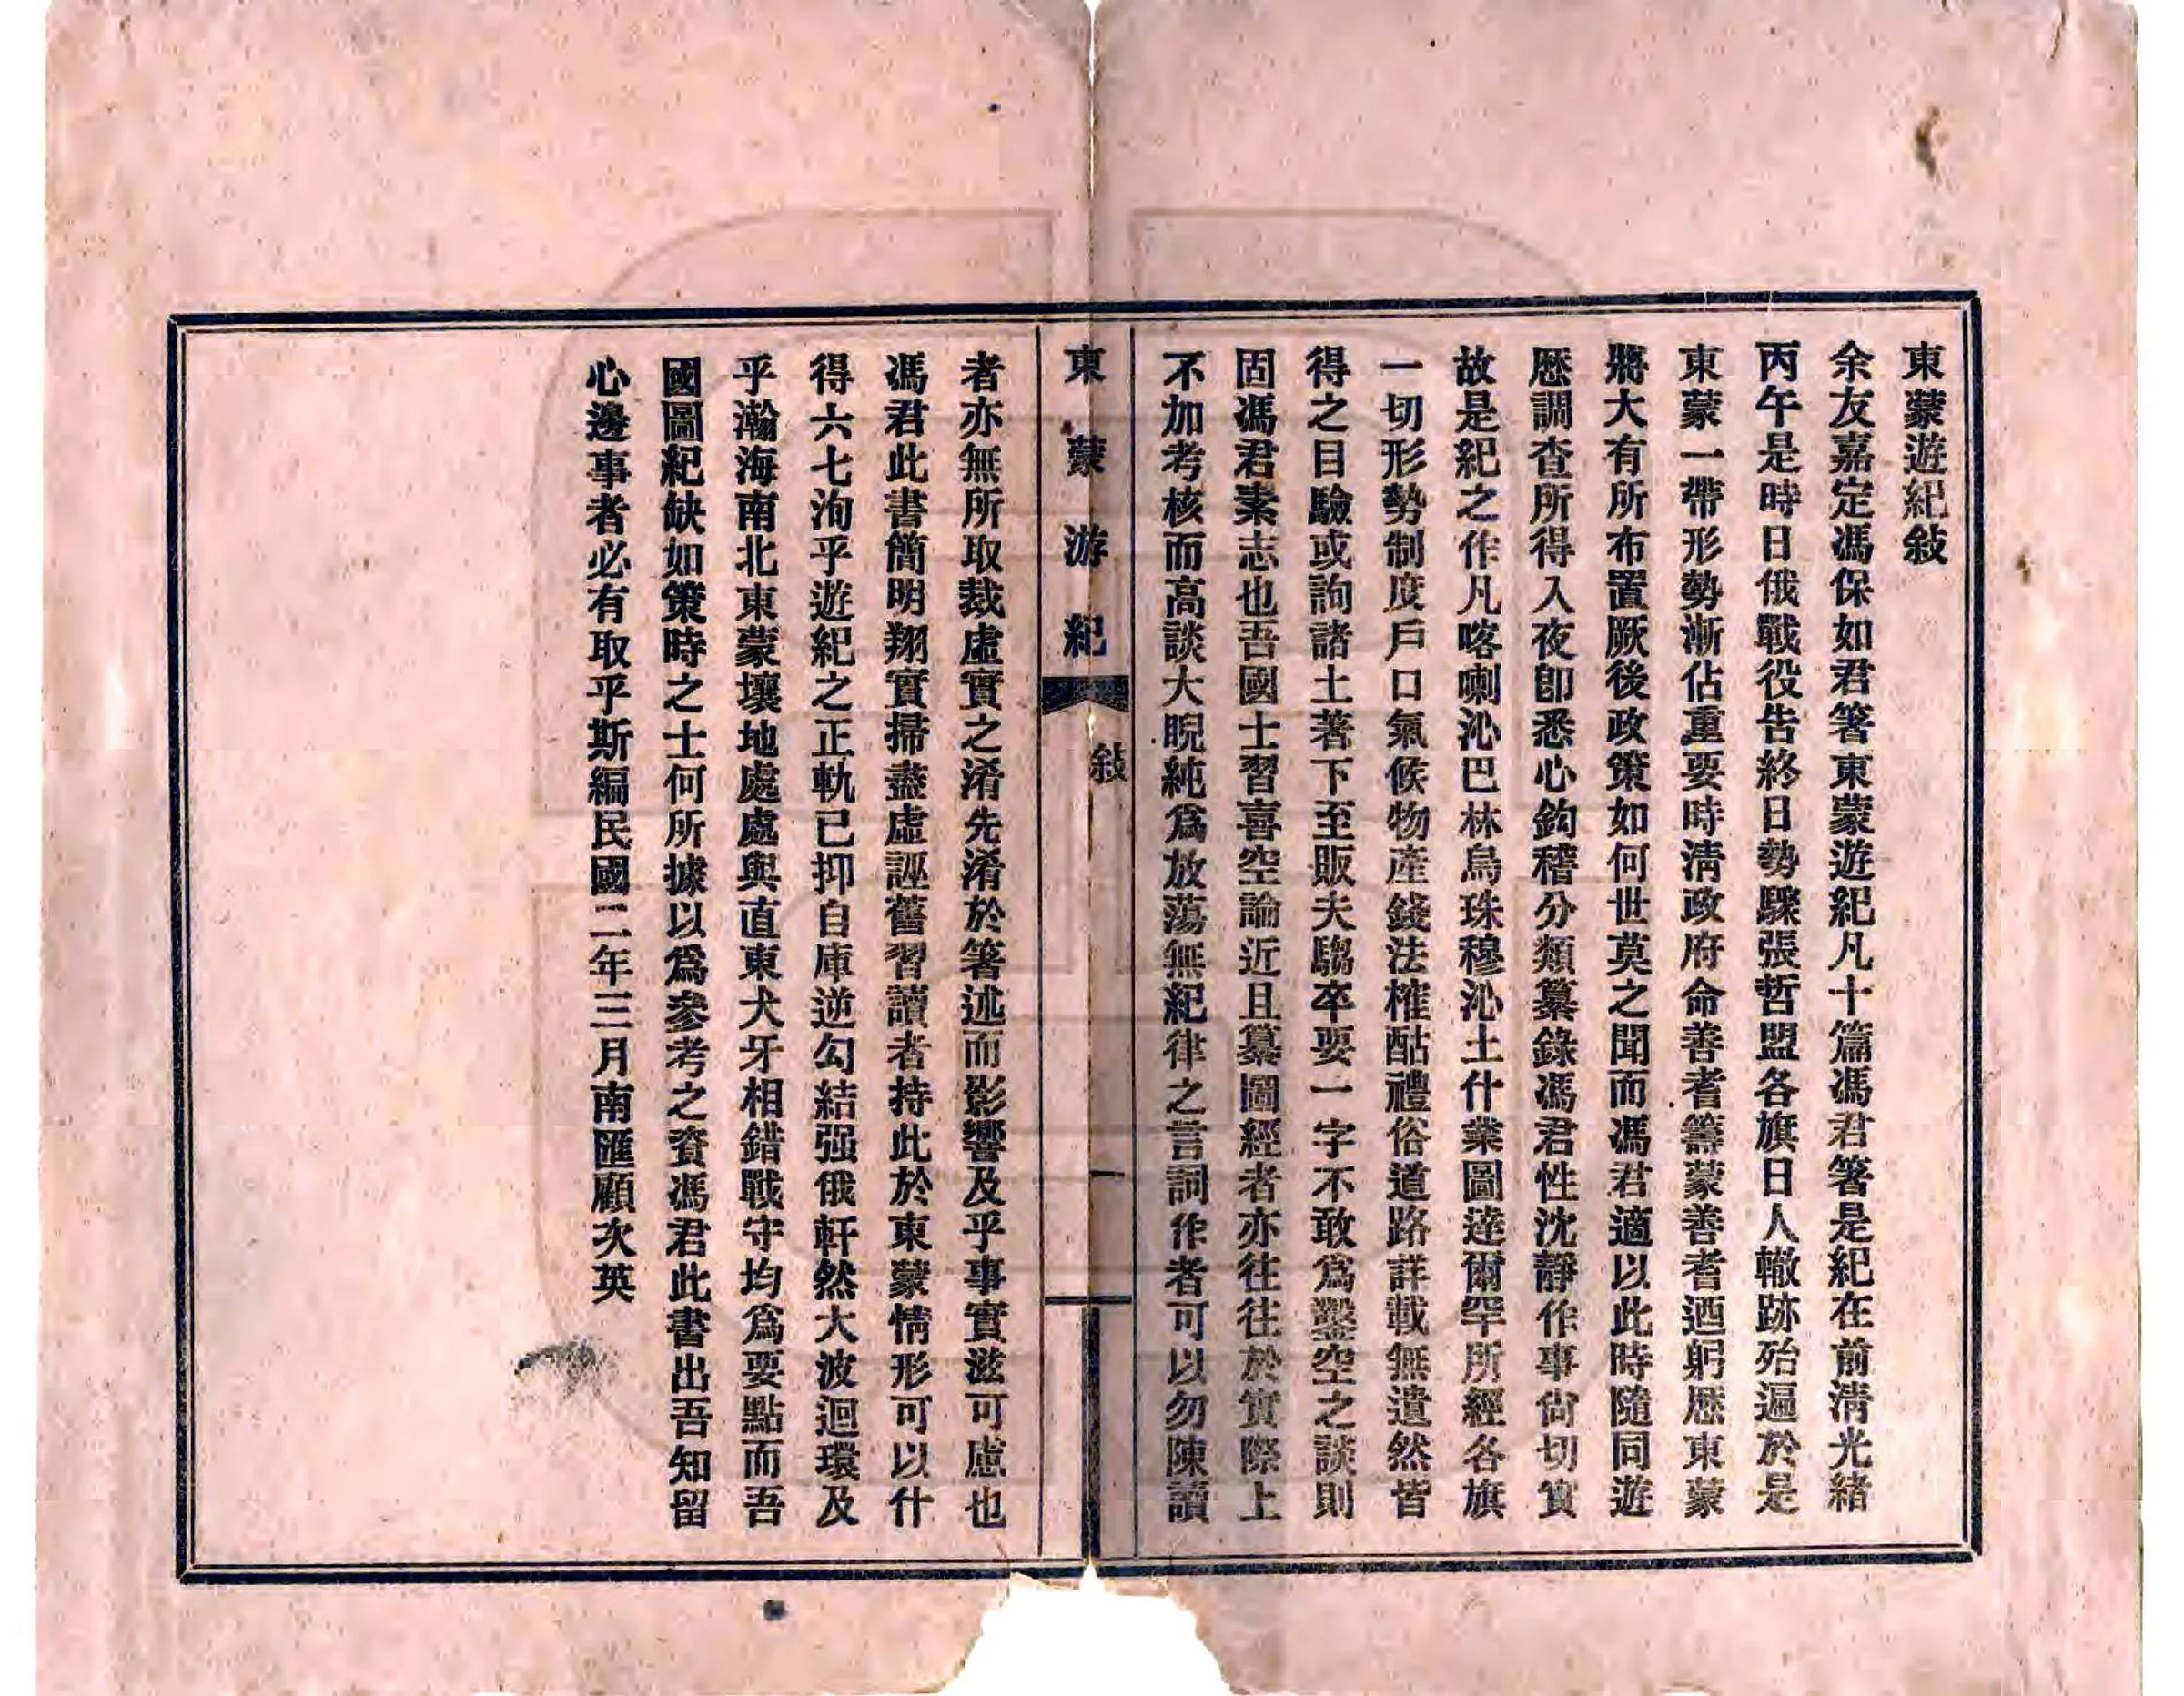 東蒙遊紀敍
余友嘉定馮保如君箸東蒙遊紀凡十篇馮君箸是紀在前清光緒
丙午是時日俄戰役告終日勢驟張哲盟各旗日人轍跡殆遍於是
東蒙一帶形勢漸佔重要時清政府命善耆籌蒙善耆迺躬歷東蒙
將大有所布置厥後政策如何世莫之聞而馮君適以此時隨同遊
歷調查所得入夜卽悉心鈎稽分類纂錄馮君性沈靜作事尙切實
故是紀之作凡喀喇沁巴林烏珠穆沁土什業圖達爾罕所經各旗
一切形勢制度戶口氣候物產錢法榷酤禮俗道路詳載無遺然皆
得之目驗或詢諸土著下至販夫騶卒要一字不敢爲鑿空之談則
固馮君素志也吾國士習喜空論近且纂圖經者亦往往於實際上
不加考核而高談大睨純爲放蕩無紀律之言詞作者可以勿陳讀
東蒙游紀
敍
一
者亦無所取裁虛實之淆先淆於箸述而影響及乎事實滋可慮也
馮君此書簡明翔實掃盡虛誣舊習讀者持此於東蒙情形可以什
得六七洵乎遊紀之正軌已抑自庫逆勾結强俄軒然大波迴環及
乎瀚海南北東蒙壤地處處與直東犬牙相錯戰守均爲要點而吾
國圖紀缺如策時之士何所據以爲參考之資馮君此書出吾知留
心邊事者必有取乎斯編民國二年三月南匯顧次英